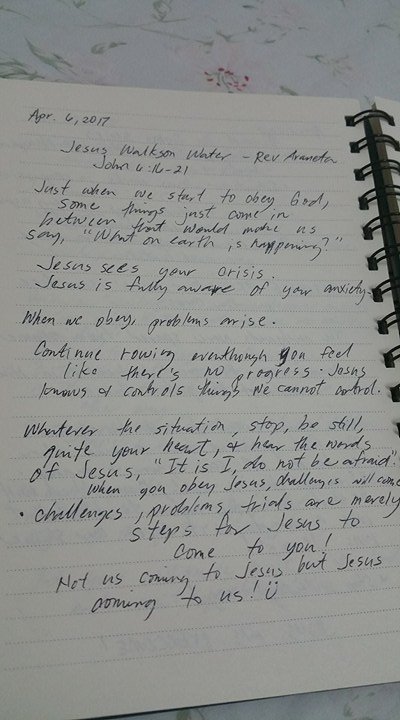 Apr. 6, 2017
Jesus Walks on Water - Rev Araneta
John 6:16-21
Just when we start to obey God,
some things just come in
between that would make us
say, "What on earth is happening?"
Jesus sees your crisis.
Jesus is fully aware of your anxiety.
When we obey, problems arise.
Continue rowing eventhough you feel
like there's no progress. Jesus
knows & controls things we cannot control.
Whatever the situation, stop, be still,
quite your heart, & hear the words
of Jesus, "It is I, do not be afraid".
When you obey Jesus, challenges will come
• challenges, problems, trials are merely
steps for Jesus to
come to you!
Not us coming to Jesus but Jesus
coming to us! Ü